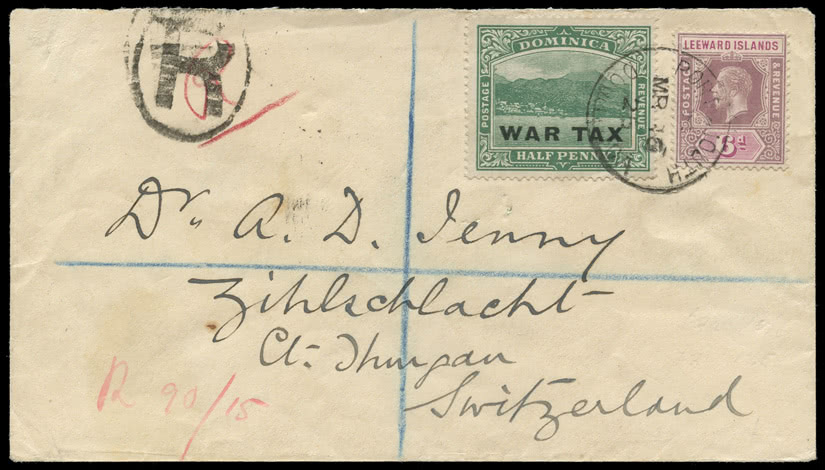 R
DOMINICA
POSTAGE
REVENUE
WAR TAX
HALF PENNY
LEEWARD ISLANDS
POSTAGE
& REVENUE
6d
MR 16
Dr. A. D. Jenny
Zihlschlacht
Ct. Thurgau
Switzerland
R 90/15